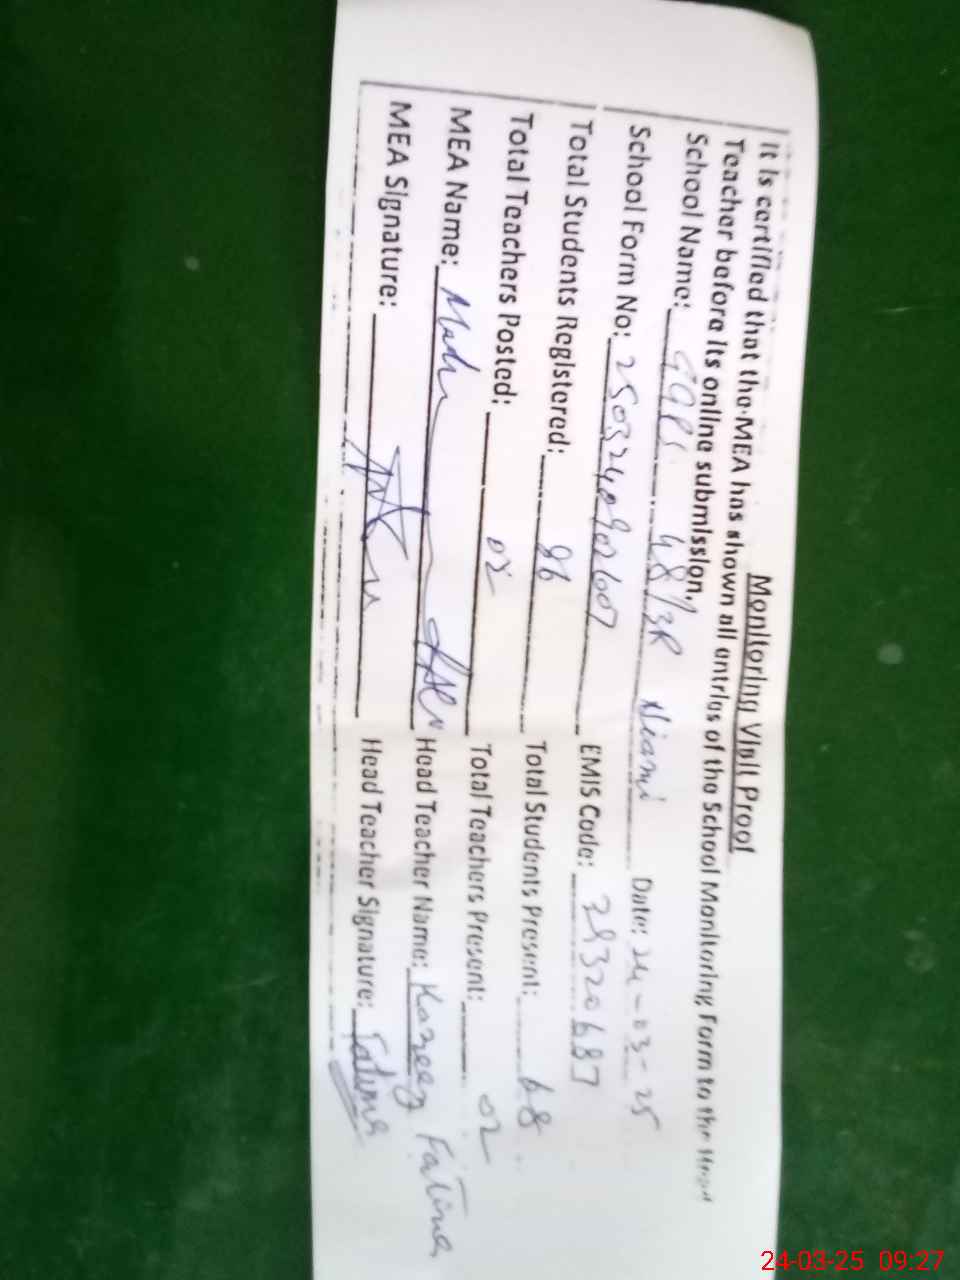 Monitoring Visit Proof
It is certified that the MEA has shown all entries of the School Monitoring Form to the Head
Teacher before its online submission.
School Name: GGPS 48/3R Niami Date: 24-03-25
School Form No: 250324090 EMIS Code: 31320687
Total Students Registered: 86 Total Students Present: 68
Total Teachers Posted: 02 Total Teachers Present: 02
MEA Name: Head Teacher Name: Kaneez Fatima
MEA Signature: Head Teacher Signature: Fatima
24-03-25 09:27